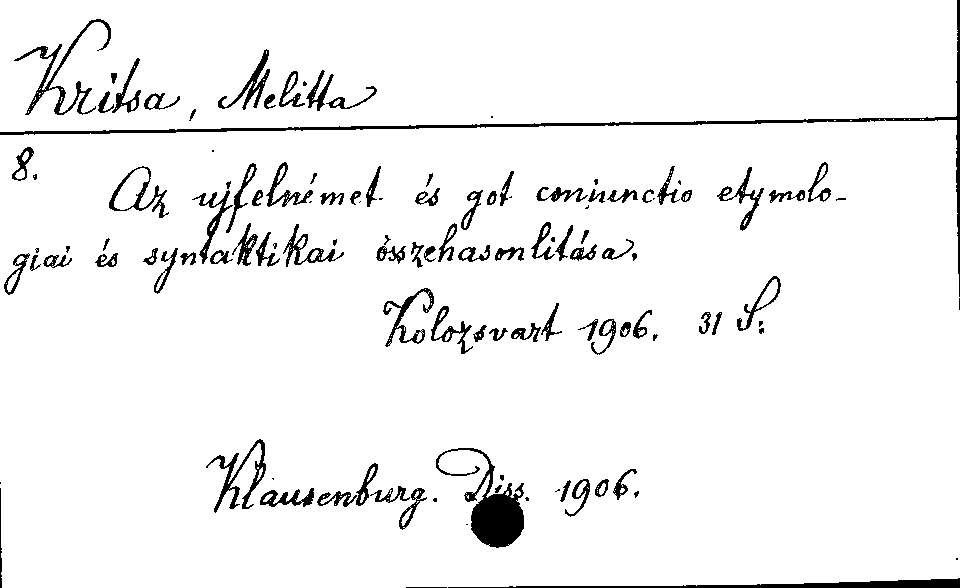 Kritsa, Melitta
8.
Az ujfelnémet és got coniunctio etymolo-
giai és syntaktikai összehasonlitása.
Kolozsvart 1906. 31 S.
Klausenburg. Diss. 1906.